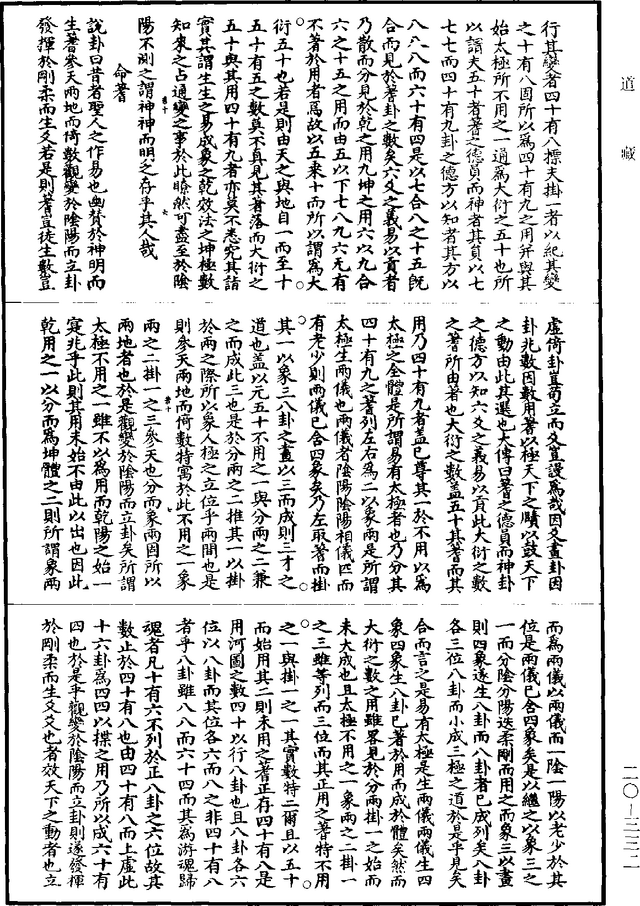 道藏
行其變者四十有八標夫掛一者以紀其變
之十有八固所以爲四十有九之用并與其
始太極所不用之一通爲大衍之五十也所
以謂夫五十者蓍之德員而神者其員以七
七七而四十有九卦之德方以知者其方以
八八八而六十有四是以七合八之十五旣
合而見於蓍卦之數矣六爻之義易以貢者
乃散而分見於乾之用九坤之用六以九合
六之十五之用而由五以下七八九六无有
不著於用者爲故以五来十而所以謂爲大
衍五十也若是則由天之與地自一而至十
五十有五之數莫不真見其著落而大衍之
五十與其用四十有九者亦莫不悉究其詰
實其謂生生之易成象之乾效法之坤極數
知來之占通變之事於此瞭然可盡至於陰
陽不測之謂神神而明之存乎其人哉
命蓍
說卦曰昔者聖人之作易也幽贊於神明而
生蓍參天兩地而倚數觀變於陰陽而立卦
發揮於剛柔而生爻若是則蓍豈徒生數豈
虛倚卦豈苟立而爻豈謾爲哉因爻畫卦因
卦兆數因數用蓍以極天下之賾以鼓天下
之動由此其選也大傳曰蓍之德員而神卦
之德方以知六爻之義易以貢此大衍之數
之蓍所由著也大衍之數蓋五十其蓍而其
用乃四十有九者蓋已尊其一於不用以爲
太極之全體是所謂易有太極者也乃分其
四十有九之蓍列左右爲二以象兩是所謂
太極生兩儀也兩儀者陰陽陰陽相儀匹而
有老少則兩儀已含四象矣乃左取蓍而掛
其一以象三八卦之畫以三而成則三才之
道也蓋以元五十不用之一與分兩之二兼
之而成此三也是於分兩之二推其一以掛
於兩之際所以象人極之立位乎兩間也是
則參天兩地而倚數特寓於此不用之一象
兩之二掛一之三參天也分而象兩因所以
兩地者也於是觀變於陰陽而立卦矣所謂
太極不用之一雖不以爲用而乾陽之始一
寔兆乎此則其用未始不由此以出也因此
乾用之一以分而爲坤體之二則所謂象兩
而爲兩儀以兩儀而一陰一陽以老少於其
位是兩儀已含四象矣是以繼之以象三之
一而分陰分陽迭柔剛而用之而象三以畫
則四象遂生八卦而八卦者已成列矣八卦
各三位八卦而小成三極之道於是乎見矣
合而言之是易有太極是生兩儀兩儀生四
象四象生八卦已著於用而成於體矣然而
大衍之數之用雖畧見於分兩掛一之始而
未大成也且太極不用之一象兩之二掛一
之三雖等列而三位而其正用之蓍特不用
之一與掛一之一其實數特二爾且以五十
而始用其二則未用之蓍正存四十有八是
用河圖之數四十以行八卦也且八卦各六
位以八卦而其位各六而八之非四十有八
者乎八卦雖八八而六十四而其爲游魂歸
魂者凡十有六不列於正八卦之六位故其
數止於四十有八也由四十有八而上虛此
十六卦爲四四以揲之用乃所以成六十有
四也於是乎觀變於陰陽而立卦則遂發揮
於剛柔而生爻爻也者效天下之動者也立
二〇—三三二